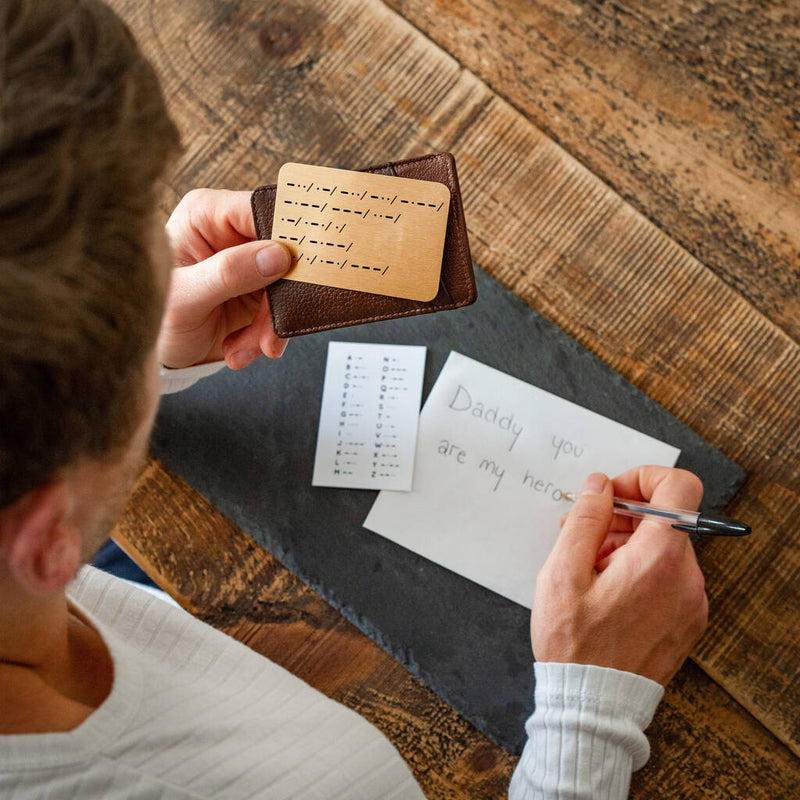 -··/·-/-··/-··/-·--/
-·--/---/··-/
·-/·-·/·/
--/-·--/
/·/·-·/---/
A N
B O
C P
D Q
E R
F S
G T
H U
I V
J W
K X
L Y
M Z
Daddy you
are my hero